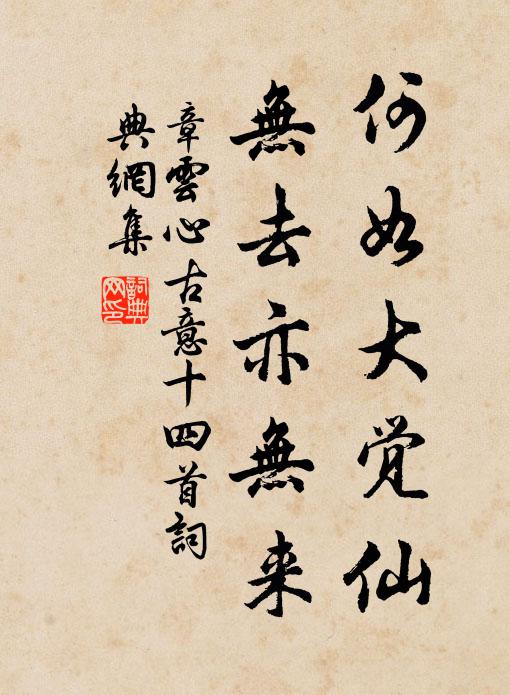 何如大觉仙
無去亦無来
章雲心古意十四首詞
典網集
詞典网印